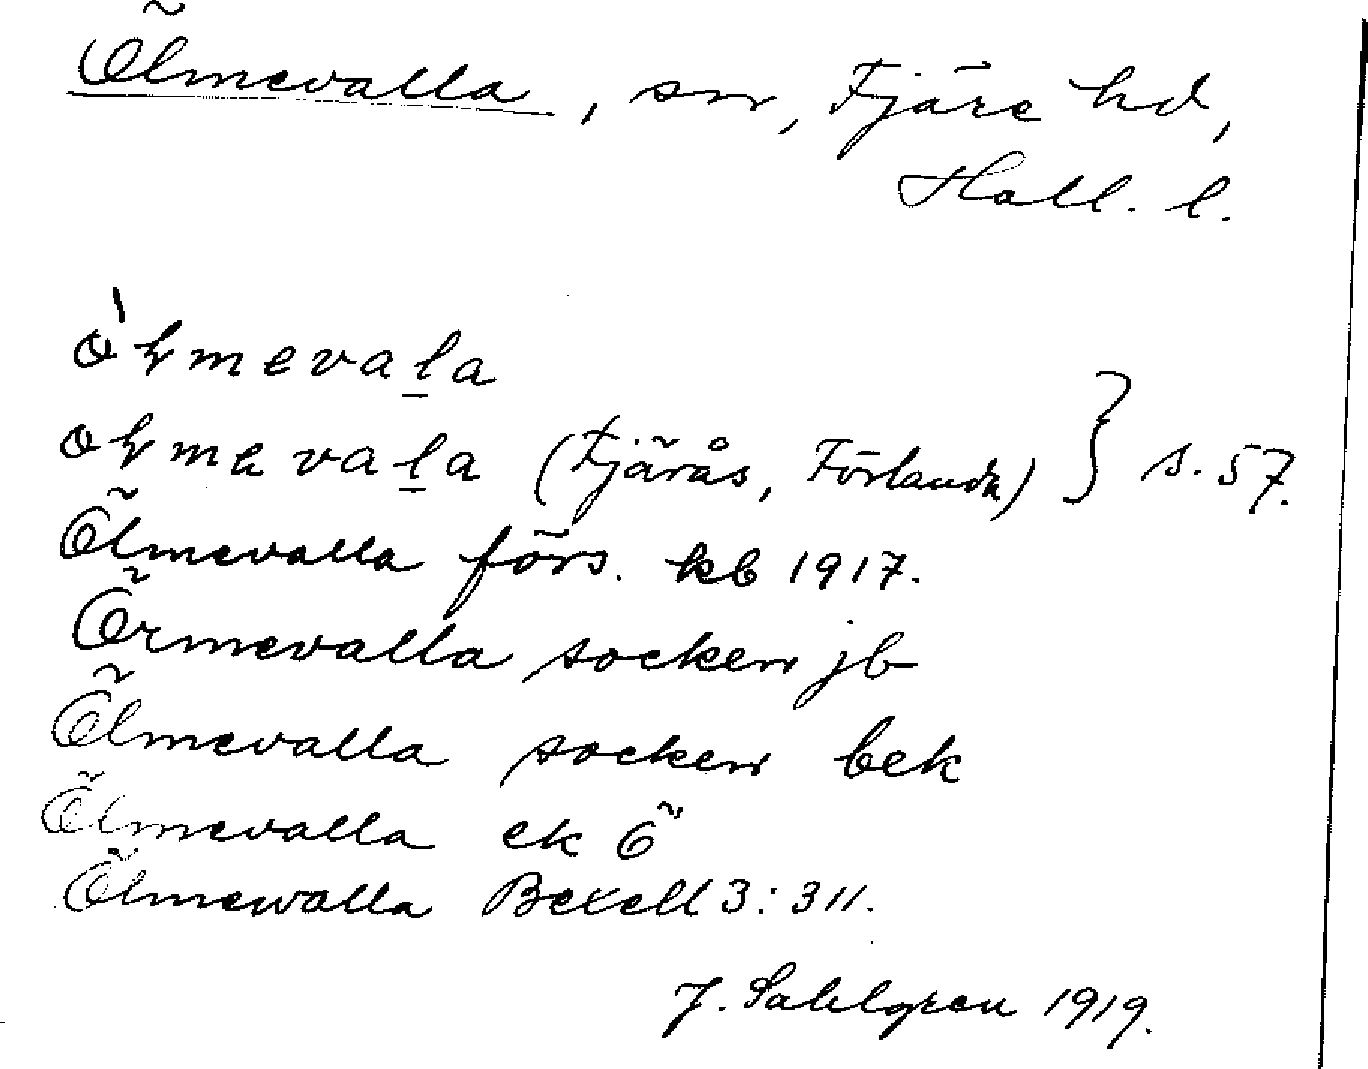 Ölmevalla, sn, Fjäre hd,
Hall. l.
ò̀ɽmevaḻa
oɽmevaḻa (Fjärås, Förlanda) } s. 57.
Ölmevalla förs. kb 1917.
Örmevalla socken jb
Ölmevalla socken bek
Ölmevalla ek Ö
Ölmewalla Bexell 3: 311.
J. Sahlgren 1919.